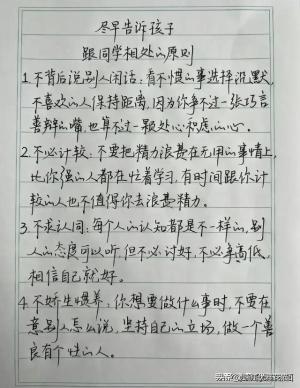 尽早告诉孩子
跟同学相处的原则
1.不背后说别人闲话:看不惯的事选择沉默,
不喜欢的人保持距离,因为你争不过一张巧言
善辩的嘴,也算不过一颗处心积虑的心。
2.不必计较:不要把精力浪费在无用的事情上,
比你强的人都在忙着学习,有时间跟你计
较的人也不值得你去浪费精力。
3.不求认同:每个人的认知都是不一样的,别
人的态度可以听,但不必讨好,不必争高低,
相信自己就好。
4.不娇生惯养:你想要做什么事时,不要在
意别人怎么说,坚持自己的立场,做一个善
良有个性的人。